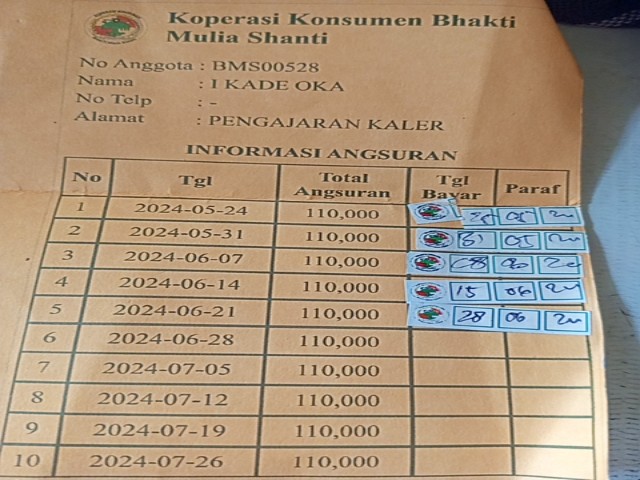 Koperasi Konsumen Bhakti
Mulia Shanti
No Anggota : BMS00528
Nama : I KADE OKA
No Telp : -
Alamat : PENGAJARAN KALER
INFORMASI ANGSURAN
No Tgl Total Angsuran Tgl Bayar Paraf
1 2024-05-24 110,000 05 24
2 2024-05-31 110,000 31 05 24
3 2024-06-07 110,000 08 06 24
4 2024-06-14 110,000 15 06 24
5 2024-06-21 110,000 28 06 24
6 2024-06-28 110,000
7 2024-07-05 110,000
8 2024-07-12 110,000
9 2024-07-19 110,000
10 2024-07-26 110,000